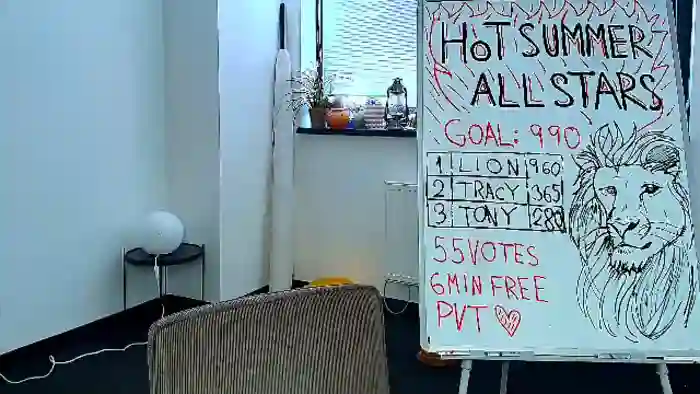 HOT SUMMER
ALL STARS
GOAL: 990
1 LION 960
2 TRACY 365
3 TONY 280
55 VOTES
6 MIN FREE
PVT